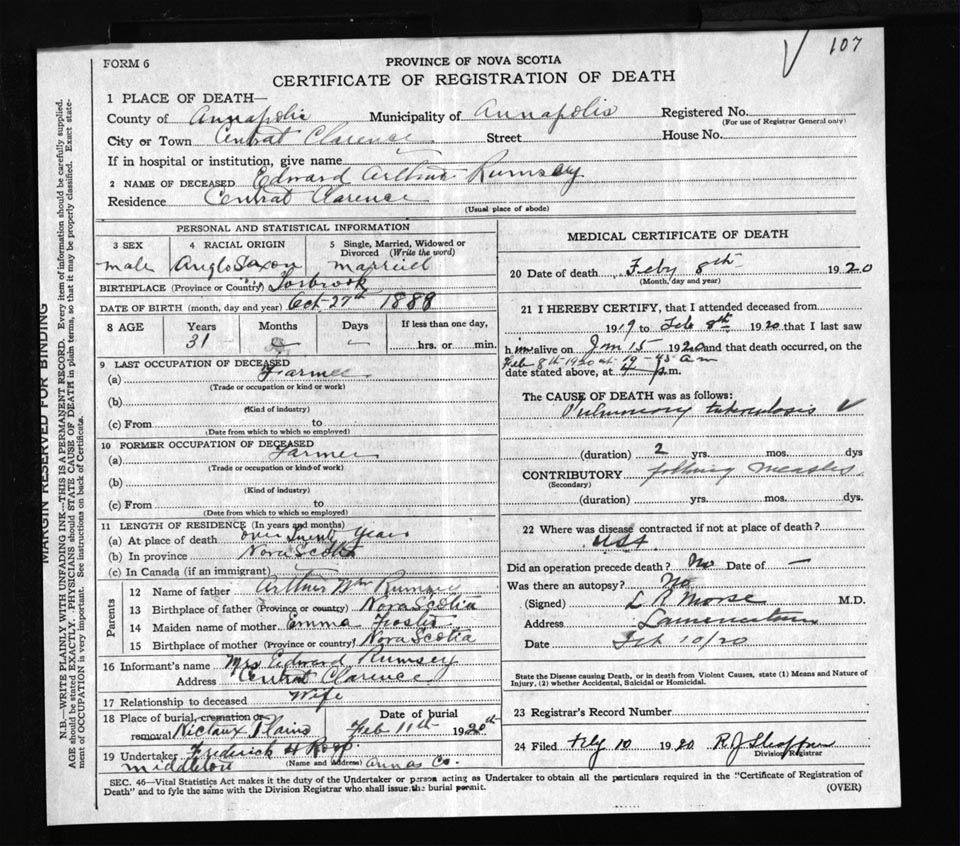 107
FORM 6
PROVINCE OF NOVA SCOTIA
CERTIFICATE OF REGISTRATION OF DEATH
1 PLACE OF DEATH—
County of Annapolis Municipality of Annapolis Registered No.
(For use of Registrar General only)
City or Town Central Clarence Street House No.
If in hospital or institution, give name
2 NAME OF DECEASED Edward Arthur Rumsey
Residence Central Clarence
(Usual place of abode)
PERSONAL AND STATISTICAL INFORMATION
3 SEX 4 RACIAL ORIGIN 5 Single, Married, Widowed or Divorced (Write the word)
Male Anglo Saxon married
BIRTHPLACE (Province or County) Torbrook
DATE OF BIRTH (month, day and year) Oct 27th 1888
8 AGE Years Months Days If less than one day,
31 hrs. or min.
9 LAST OCCUPATION OF DECEASED
(a) Farmer
(Trade or occupation or kind of work)
(b)
(Kind of industry)
(c) From to
(Date from which to which so employed)
10 FORMER OCCUPATION OF DECEASED
(a) Farmer
(Trade or occupation or kind of work)
(b)
(Kind of industry)
(c) From to
(Date from which to which so employed)
11 LENGTH OF RESIDENCE (In years and months)
(a) At place of death over Years
(b) In province Nova Scotia
(c) In Canada (if an immigrant)
Parents
12 Name of father Arthur Wm Rumsey
13 Birthplace of father (Province or country) Nova Scotia
14 Maiden name of mother Emma Foster
15 Birthplace of mother (Province or country) Nova Scotia
16 Informant's name Mrs Edward Rumsey
Address Central Clarence
17 Relationship to deceased Wife
18 Place of burial, cremation or removal Nictaux Plains Date of burial Feb 11th 1920
19 Undertaker Frederick H
(Name and Address)
Middleton Annas Co.
MEDICAL CERTIFICATE OF DEATH
20 Date of death Feby 8th 1920
(Month, day and year)
21 I HEREBY CERTIFY, that I attended deceased from
1919 to Feb 8th 1920 that I last saw
him alive on Jan 15 1920 and that death occurred, on the
Feb 8th 1920 at am
date stated above, at 4 p.m.
The CAUSE OF DEATH was as follows:
Pulmonary tuberculosis
(duration) 2 yrs. mos. dys
CONTRIBUTORY following Measles
(Secondary)
(duration) yrs. mos. dys.
22 Where was disease contracted if not at place of death?
Did an operation precede death? No Date of —
Was there an autopsy? No
(Signed) L R Morse M.D.
Address Lawrencetown
Date Feb 10/20
State the Disease causing Death, or in death from Violent Causes, state (1) Means and Nature of Injury, (2) whether Accidental, Suicidal or Homicidal.
23 Registrar's Record Number
24 Filed Feby 10 1920 R J Shaffner
Division Registrar
SEC. 46—Vital Statistics Act makes it the duty of the Undertaker or person acting as Undertaker to obtain all the particulars required in the "Certificate of Registration of
Death" and to fyle the same with the Division Registrar who shall issue the burial permit.
(OVER)
MARGIN RESERVED FOR BINDING
N.B.—WRITE PLAINLY WITH UNFADING INK—THIS IS A PERMANENT RECORD. Every item of information should be carefully supplied.
AGE should be stated EXACTLY. PHYSICIANS should STATE CAUSE OF DEATH in plain terms, so that it may be properly classified. Exact state-
ment of OCCUPATION is very important. See instructions on back of Certificate.